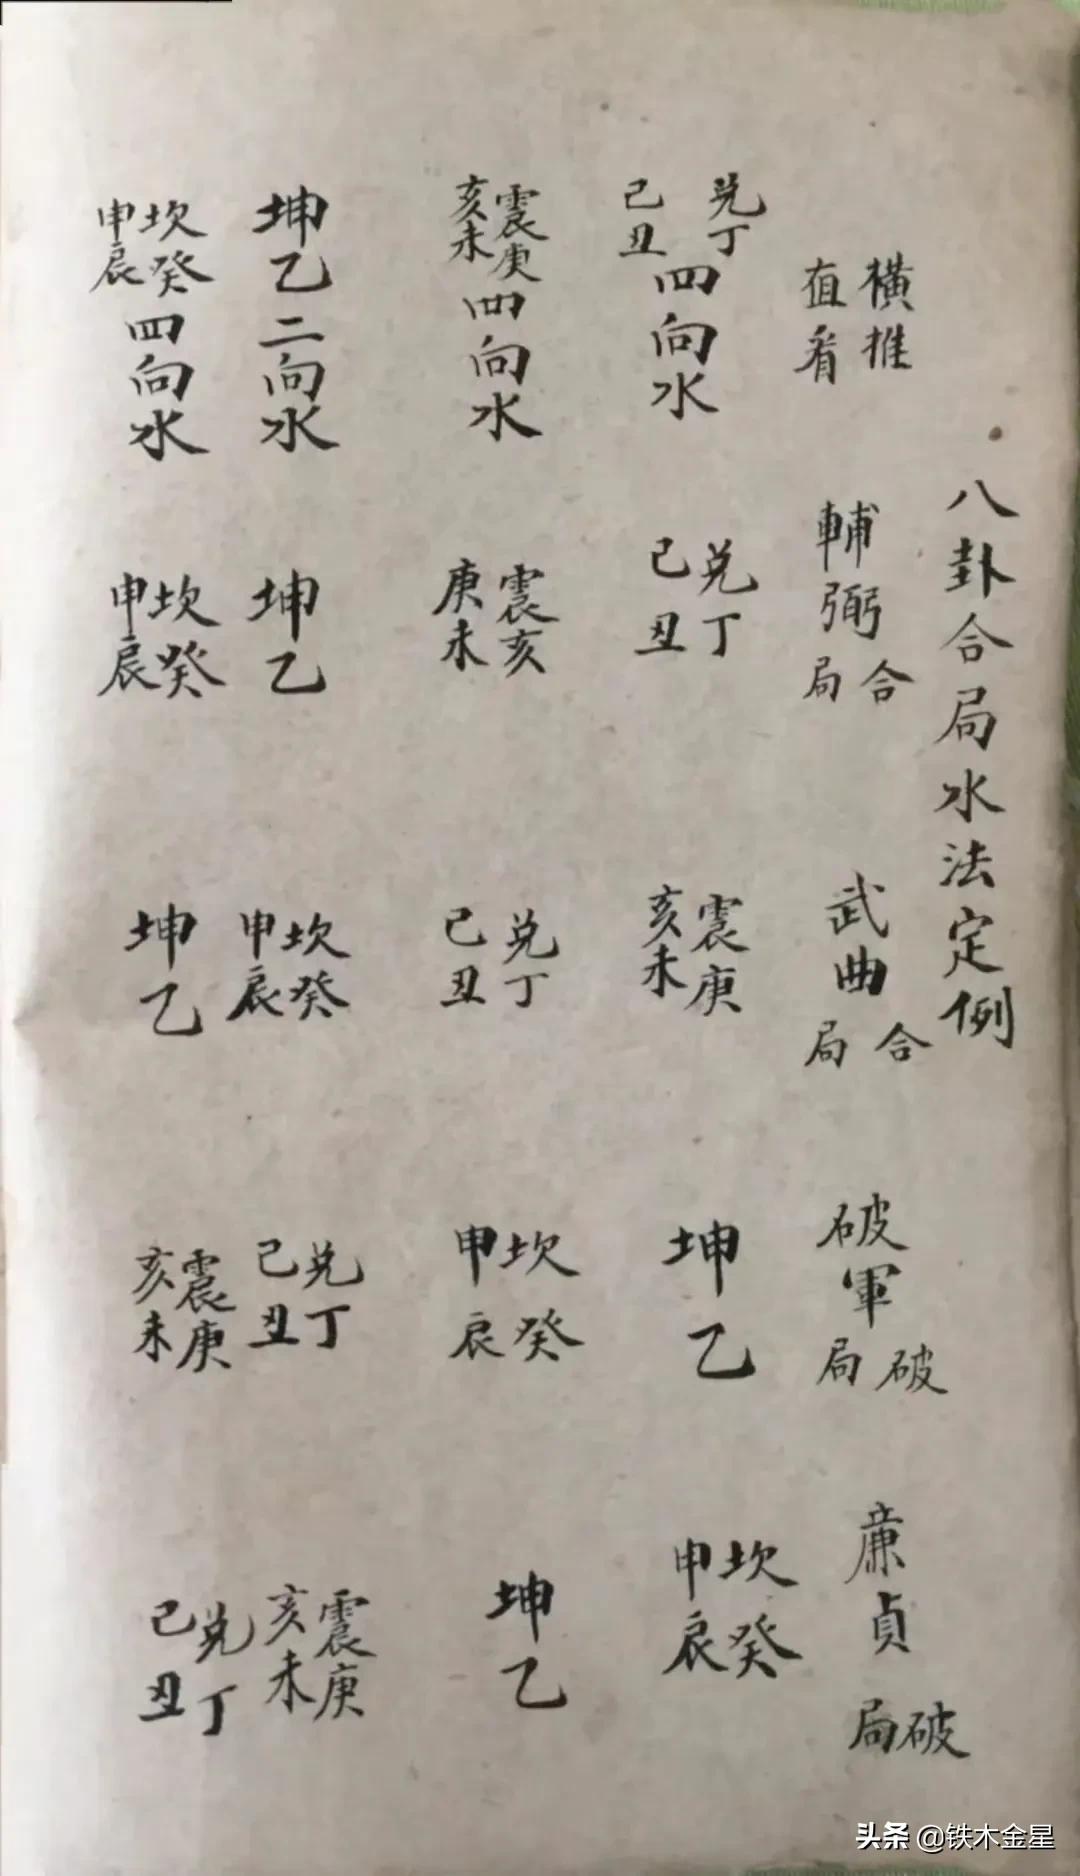 八卦合局水法定例
橫推
直看
輔弼合局
武曲合局
破軍破局
廉貞破局
兌丁
己丑
四向水
兌丁
己丑
震庚
亥未
坤
乙
坎癸
申辰
震庚
亥未
四向水
震亥
庚未
兌丁
己丑
坎癸
申辰
坤
乙
坤乙二向水
坤
乙
坎癸
申辰
兌丁
己丑
震庚
亥未
坎癸
申辰
四向水
坎癸
申辰
坤
乙
震庚
亥未
兌丁
己丑
头条 @铁木金星